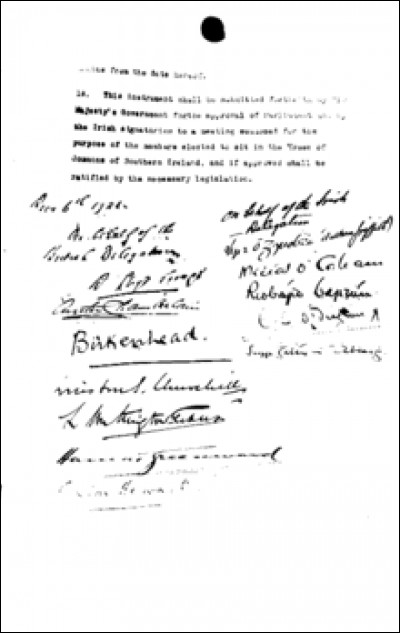 from the date hereof.
18. This instrument shall be submitted forthwith by His
Majesty's Government for the approval of Parliament and by
the Irish signatories to a meeting summoned for the
purpose of the members elected to sit in the House of
Commons of Southern Ireland, and if approved shall be
ratified by the necessary legislation.
Dec 6th 1921
On behalf of the
British Delegation
D Lloyd George
Austen Chamberlain
Birkenhead.
Winston S. Churchill
L Worthington-Evans
Hamar Greenwood
Gordon Hewart
On behalf of the Irish
Delegation
Art Ó Gríobhtha (Arthur Griffith)
Mícheál Ó Coileáin
Riobárd Bartún